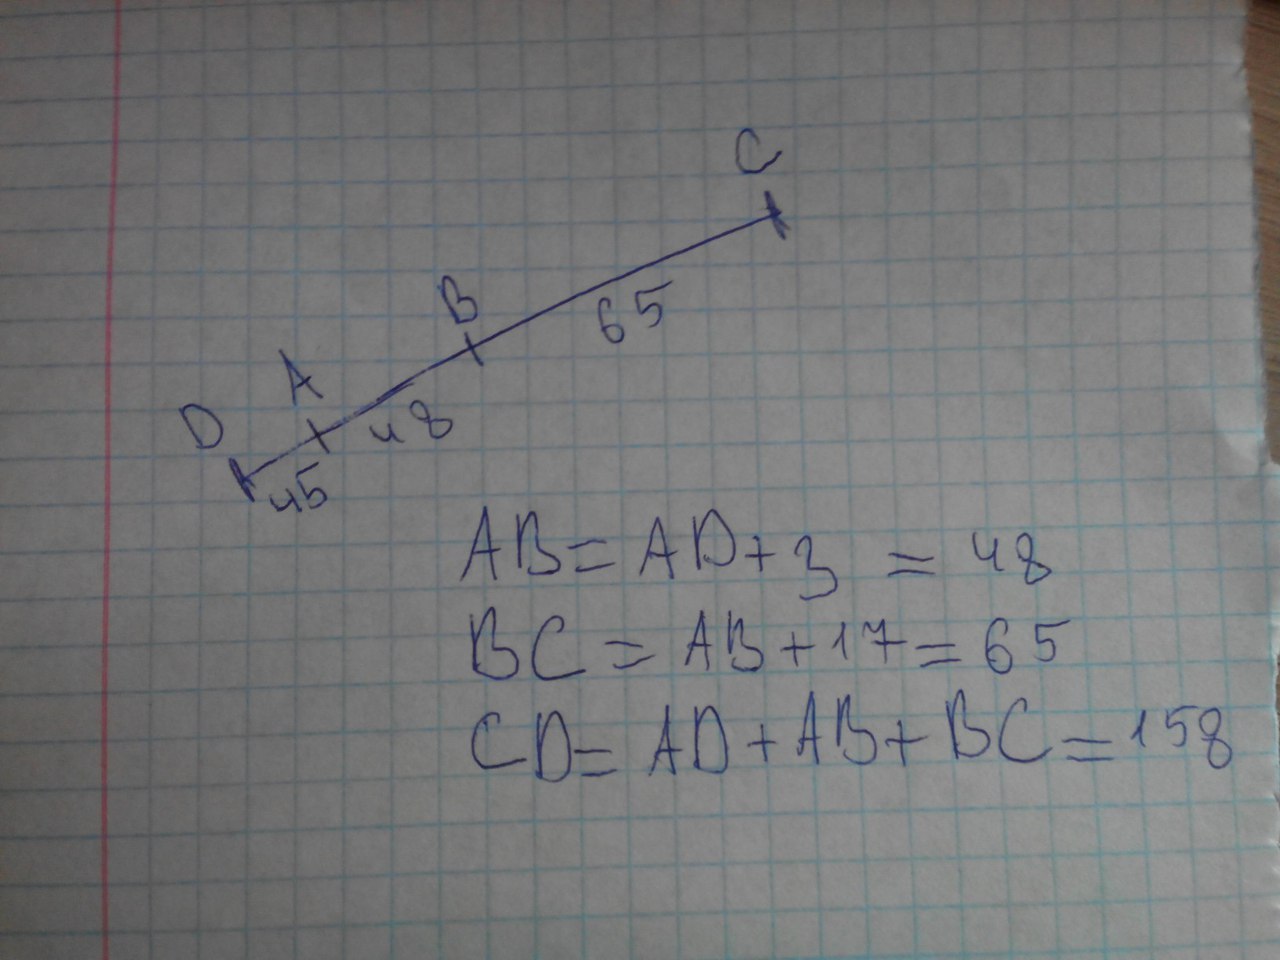 C
B
65
A
48
D
45
AB = AD + 3 = 48
BC = AB + 17 = 65
CD = AD + AB + BC = 158